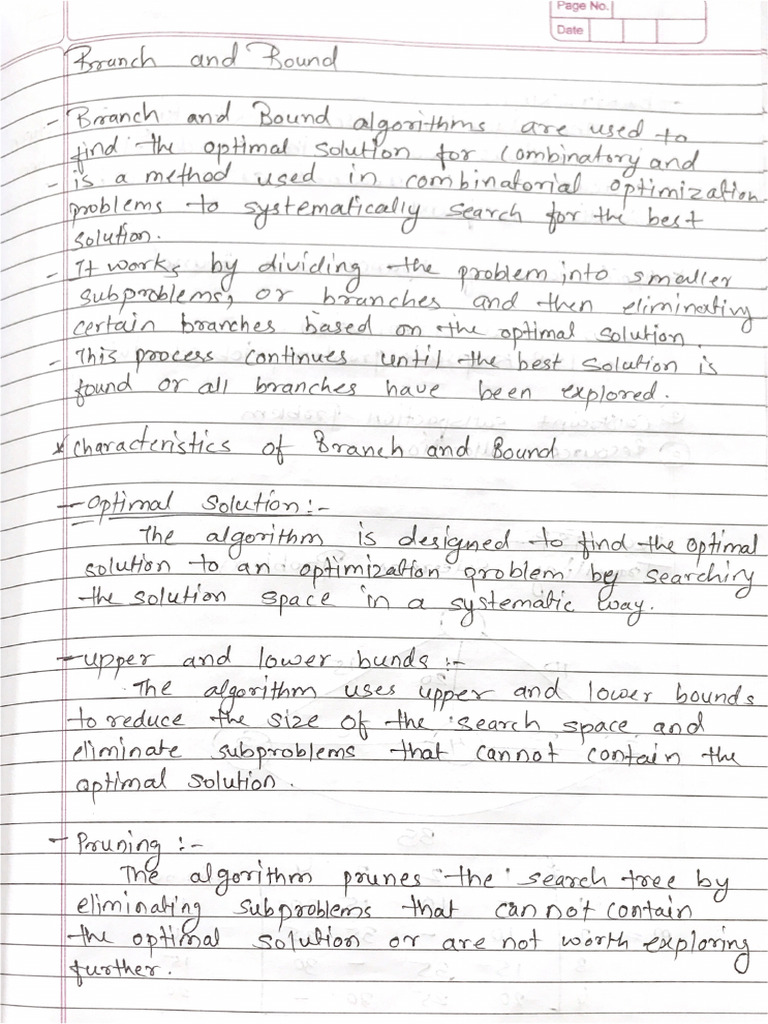 Page No.
Date
Branch and Bound
- Branch and Bound algorithms are used to
find the optimal solution for combinatory and
- is a method used in combinatorial optimization
problems to systematically search for the best
solution.
- It works by dividing the problem into smaller
subproblems, or branches and then eliminating
certain branches based on the optimal solution.
- This process continues until the best solution is
found or all branches have been explored.
* Characteristics of Branch and Bound
- Optimal solution :-
The algorithm is designed to find the optimal
solution to an optimization problem by searching
the solution space in a systematic way.
- upper and lower bunds :-
The algorithm uses upper and lower bounds
to reduce the size of the search space and
eliminate subproblems that cannot contain the
optimal solution.
- Pruning :-
The algorithm prunes the search tree by
eliminating subproblems that cannot contain
the optimal solution or are not worth exploring
further.